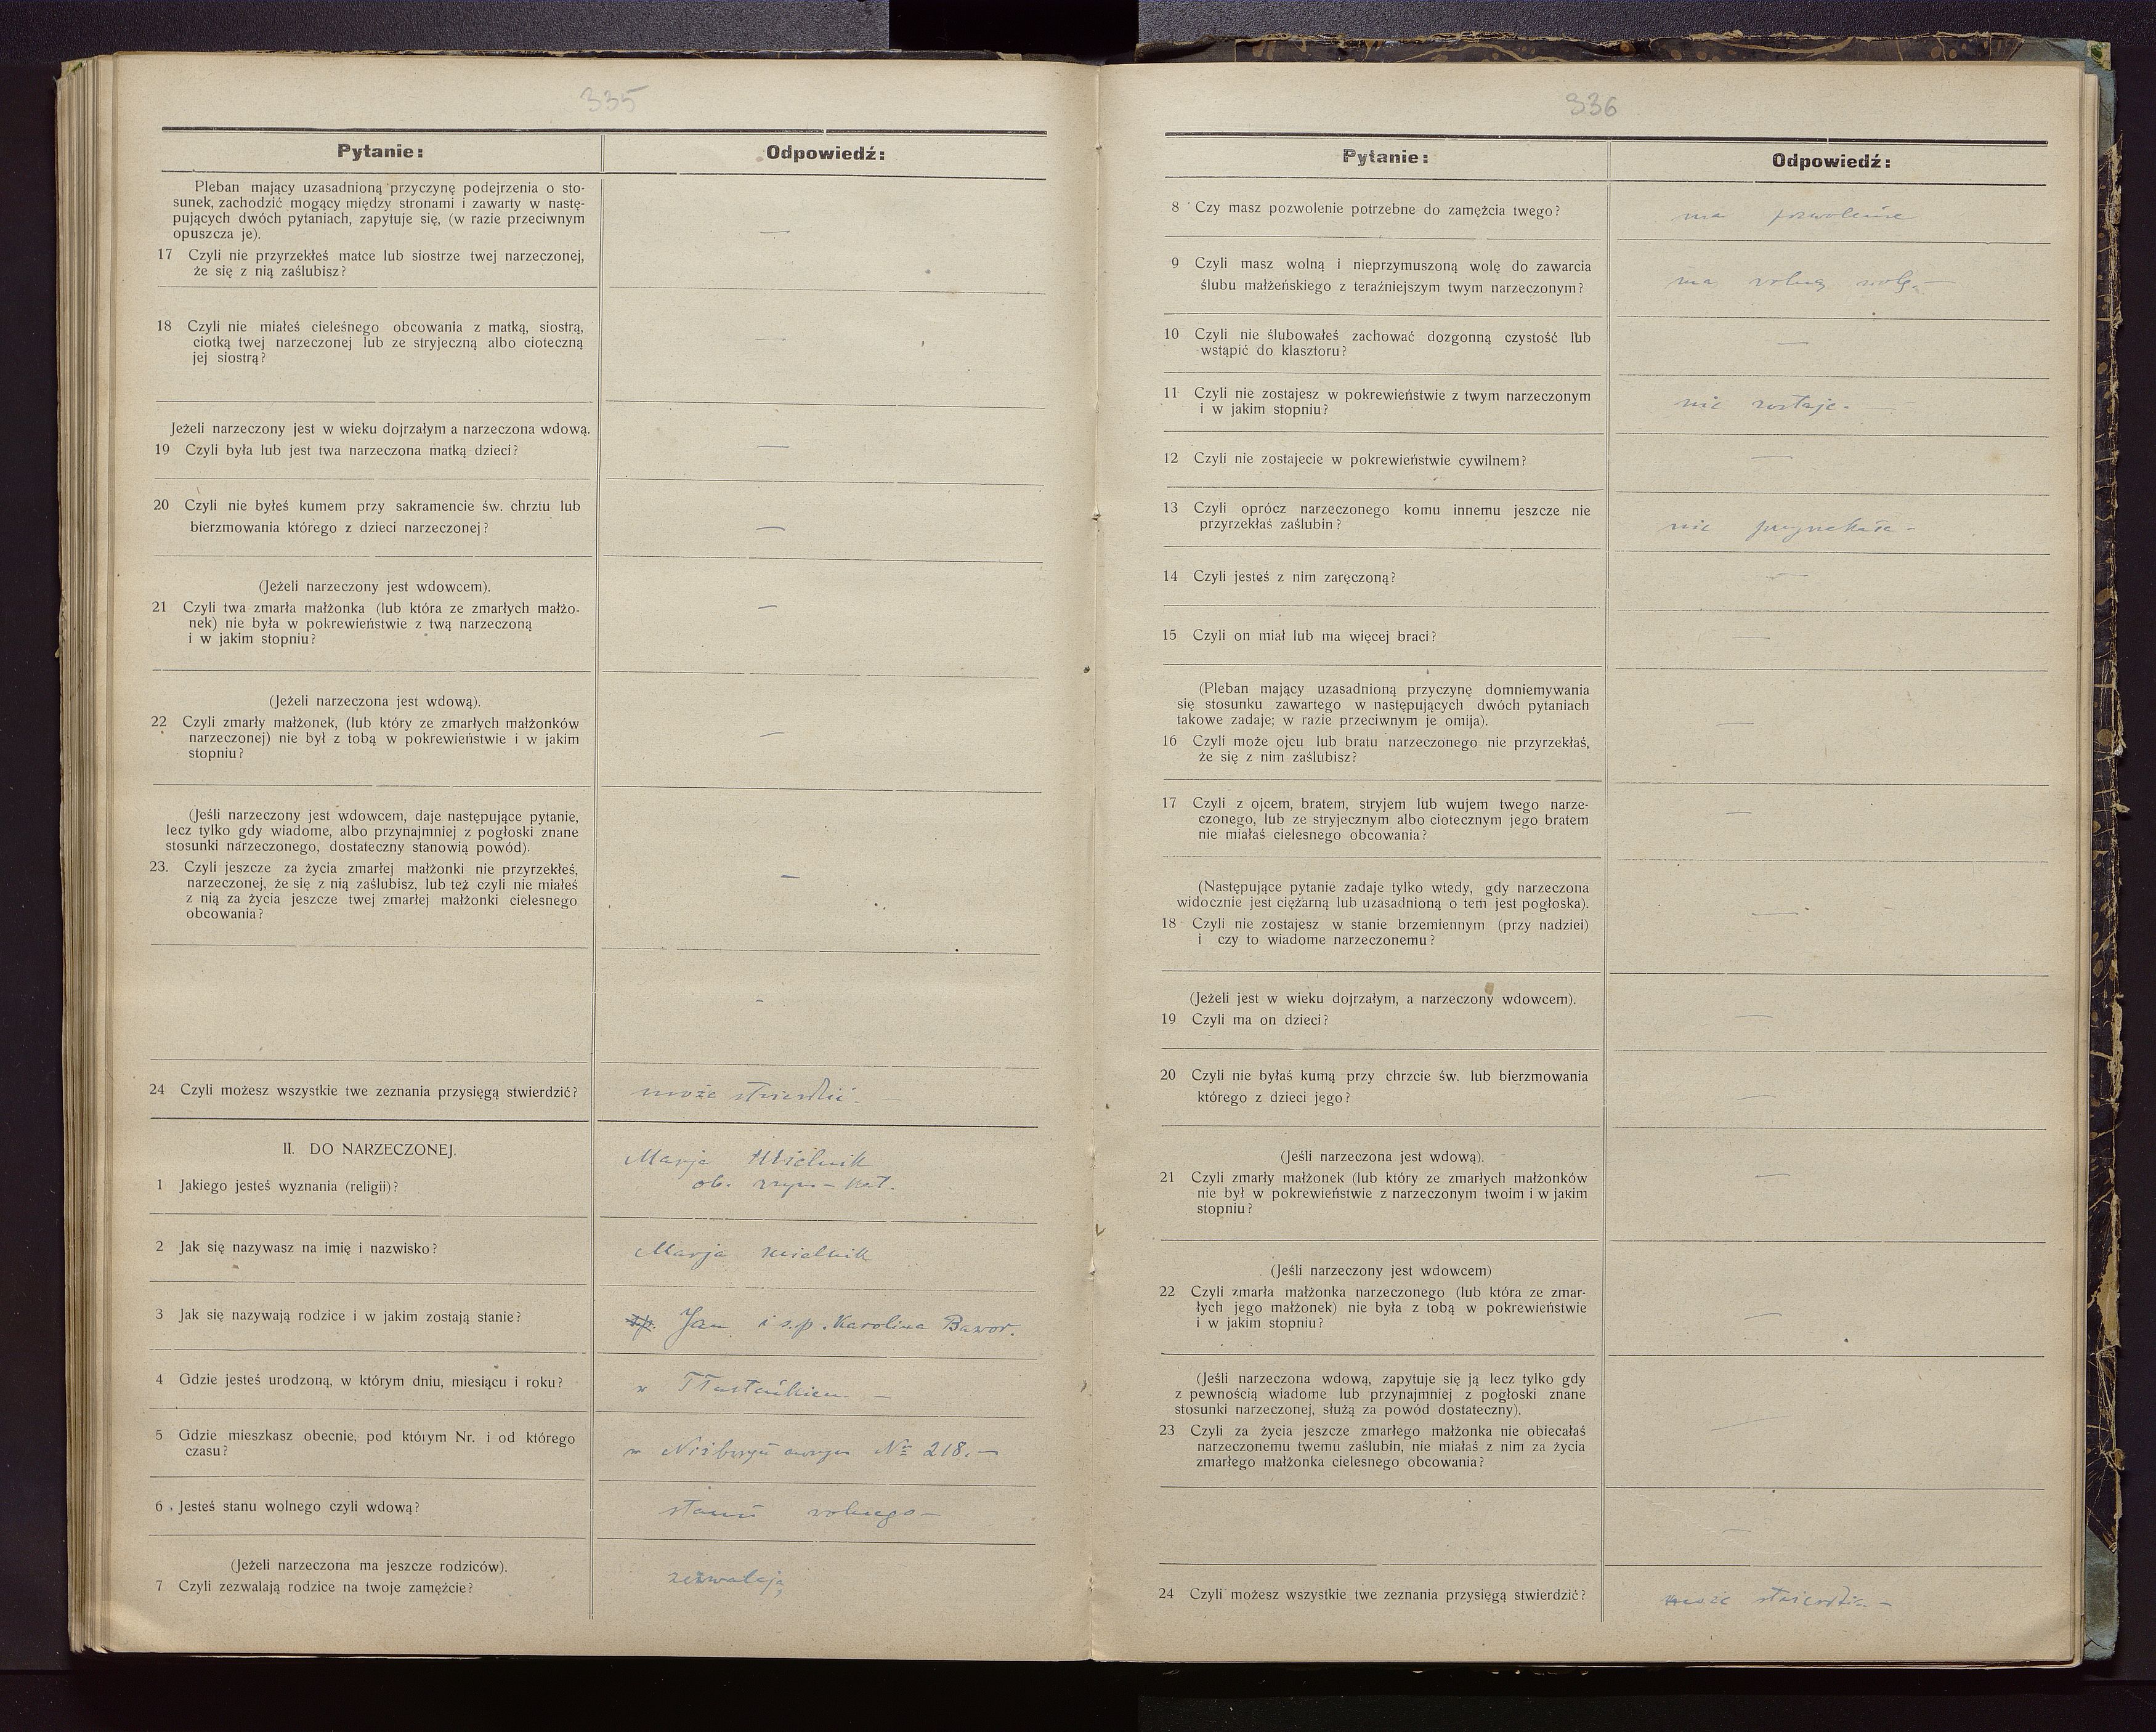 335
Pytanie:
Odpowiedź:
Pleban mający uzasadnioną przyczynę podejrzenia o sto-
sunek, zachodzić mogący między stronami i zawarty w nastę-
pujących dwóch pytaniach, zapytuje się, (w razie przeciwnym
opuszcza je).
—
17 Czyli nie przyrzekłeś matce lub siostrze twej narzeczonej,
że się z nią zaślubisz?
18 Czyli nie miałeś cieleśnego obcowania z matką, siostrą,
ciotką twej narzeczonej lub ze stryjeczną albo cioteczną
jej siostrą?
—
Jeżeli narzeczony jest w wieku dojrzałym a narzeczona wdową.
19 Czyli była lub jest twa narzeczona matką dzieci?
—
20 Czyli nie byłeś kumem przy sakramencie św. chrztu lub
bierzmowania którego z dzieci narzeczonej?
—
(Jeżeli narzeczony jest wdowcem).
21 Czyli twa zmarła małżonka (lub która ze zmarłych małżo-
nek) nie była w pokrewieństwie z twą narzeczoną
i w jakim stopniu?
—
(Jeżeli narzeczona jest wdową).
22 Czyli zmarły małżonek, (lub który ze zmarłych małżonków
narzeczonej) nie był z tobą w pokrewieństwie i w jakim
stopniu?
—
(Jeśli narzeczony jest wdowcem, daje następujące pytanie,
lecz tylko gdy wiadome, albo przynajmniej z pogłoski znane
stosunki narzeczonego, dostateczny stanowią powód).
23. Czyli jeszcze za życia zmarłej małżonki nie przyrzekłeś,
narzeczonej, że się z nią zaślubisz, lub też czyli nie miałeś
z nią za życia jeszcze twej zmarłej małżonki cielesnego
obcowania?
—
-
24 Czyli możesz wszystkie twe zeznania przysięgą stwierdzić?
może stwierdzić. —
II. DO NARZECZONEJ.
1 Jakiego jesteś wyznania (religii)?
Marja Mielnik
ob. rzym-kat.
2 Jak się nazywasz na imię i nazwisko?
Marja Mielnik
3 Jak się nazywają rodzice i w jakim zostają stanie?
Jan i s.p. Karolina Bawor.
4 Gdzie jesteś urodzoną, w którym dniu, miesiącu i roku?
w —
5 Gdzie mieszkasz obecnie, pod którym Nr. i od którego
czasu?
w Niżborgu nowym № 218. —
6 Jesteś stanu wolnego czyli wdową?
stanu wolnego —
(Jeżeli narzeczona ma jeszcze rodziców).
7 Czyli zezwalają rodzice na twoje zamęźcie?
zezwalają
336
Pytanie:
Odpowiedź:
8 Czy masz pozwolenie potrzebne do zamężcia twego?
ma pozwolenie
9 Czyli masz wolną i nieprzymuszoną wolę do zawarcia
ślubu małżeńskiego z teraźniejszym twym narzeczonym?
ma wolną wolę —
10 Czyli nie ślubowałeś zachować dozgonną czystość lub
wstąpić do klasztoru?
—
11 Czyli nie zostajesz w pokrewieństwie z twym narzeczonym
i w jakim stopniu?
nie zostaje. —
12 Czyli nie zostajecie w pokrewieństwie cywilnem?
—
13 Czyli oprócz narzeczonego komu innemu jeszcze nie
przyrzekłaś zaślubin?
nie przyrzekała -
14 Czyli jesteś z nim zaręczoną?
—
15 Czyli on miał lub ma więcej braci?
—
(Pleban mający uzasadnioną przyczynę domniemywania
się stosunku zawartego w następujących dwóch pytaniach
takowe zadaje; w razie przeciwnym je omija).
—
16 Czyli może ojcu lub bratu narzeczonego nie przyrzekłaś,
że się z nim zaślubisz?
17 Czyli z ojcem, bratem, stryjem lub wujem twego narze-
czonego, lub ze stryjecznym albo ciotecznym jego bratem
nie miałaś cielesnego obcowania?
—
(Następujące pytanie zadaje tylko wtedy, gdy narzeczona
widocznie jest ciężarną lub uzasadnioną o tem jest pogłoska).
—
18 Czyli nie zostajesz w stanie brzemiennym (przy nadziei)
i czy to wiadome narzeczonemu?
(Jeżeli jest w wieku dojrzałym, a narzeczony wdowcem).
19 Czyli ma on dzieci?
—
20 Czyli nie byłaś kumą przy chrzcie św. lub bierzmowania
którego z dzieci jego?
—
(Jeśli narzeczona jest wdową).
21 Czyli zmarły małżonek (lub który ze zmarłych małżonków
nie był w pokrewieństwie z narzeczonym twoim i w jakim
stopniu?
—
(Jeśli narzeczony jest wdowcem)
22 Czyli zmarła małżonka narzeczonego (lub która ze zmar-
łych jego małżonek) nie była z tobą w pokrewieństwie
i w jakim stopniu?
—
(Jeśli narzeczona wdową, zapytuje się ją lecz tylko gdy
z pewnością wiadome lub przynajmniej z pogłoski znane
stosunki narzeczonej, służą za powód dostateczny).
23 Czyli za życia jeszcze zmarłego małżonka nie obiecałaś
narzeczonemu twemu zaślubin, nie miałaś z nim za życia
zmarłego małżonka cielesnego obcowania?
—
—
24 Czyli możesz wszystkie twe zeznania przysięgą stwierdzić?
może stwierdzić —